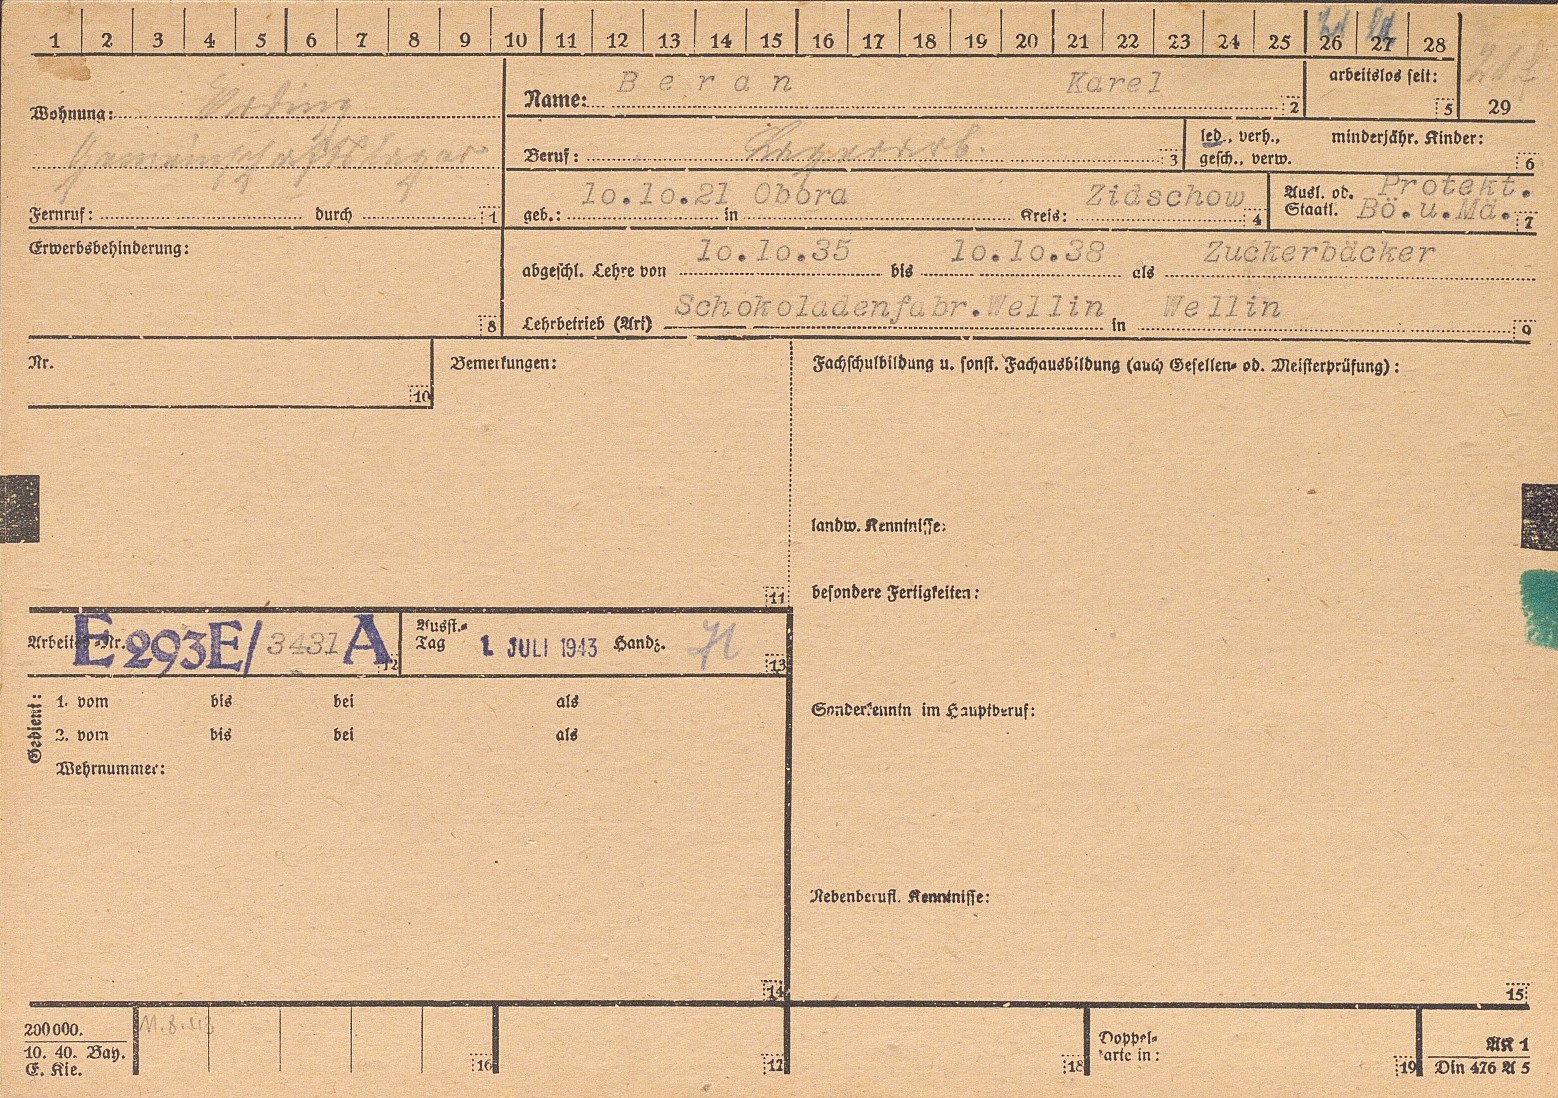 1 2 3 4 5 6 7 8 9 10 11 12 13 14 15 16 17 18 19 20 21 22 23 24 25 26 27 28
29
Wohnung: Erding
Gemeinschaftslager
Fernruf: durch 1
Name: Beran Karel 2
arbeitslos seit: 5
Beruf: Lagerarb. 3
led., verh., minderjähr. Kinder:
gesch., verw. 6
geb.: 10.10.21 in Obora Kreis: Zidschow 4
Ausl. od. Protekt.
Staatl. Bö.u.Md. 7
Erwerbsbehinderung:
8
abgeschl. Lehre von 10.10.35 bis 10.10.38 als Zuckerbäcker
Lehrbetrieb (Art) Schokoladenfabr.Wellin in Wellin 9
Nr.
10
Bemerkungen:
11
Fachschulbildung u. sonst. Fachausbildung (auch Gesellen- od. Meisterprüfung):
landw. Kenntnisse:
besondere Fertigkeiten:
Sonderkenntn im Hauptberuf:
Nebenberufl. Kenntnisse:
15
Arbeitsb.-Nr. E 293E/3431 A 12
Ausst.-
Tag 1. JULI 1943 Handz. 13
Gedient:
1. vom bis bei als
2. vom bis bei als
Wehrnummer:
14
200000.
10. 40. Bay.
C. Kie.
11.8.43
16
17
18
Doppel-
karte in:
19
AK 1
Din 476 A 5